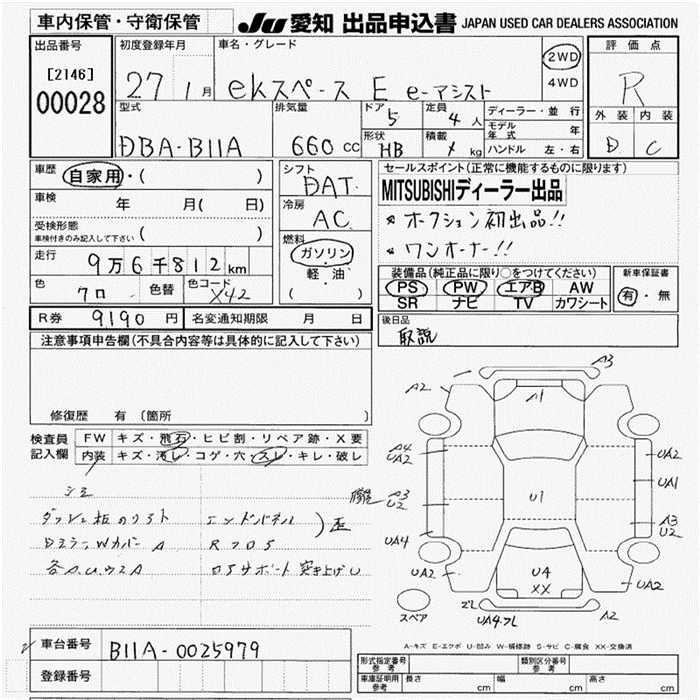 車内保管・守衛保管
JU 愛知 出品申込書 JAPAN USED CAR DEALERS ASSOCIATION
出品番号
[2146]
00028
初度登録年月
27 1月
車名・グレード
ekスペース E e-アシスト
2WD
4WD
評価点
R
外装 内装
D C
型式
DBA-B11A
排気量
660 cc
ドア
5
定員
4人
形状
HB
積載
kg
ディーラー・並行
モデル年式 年
ハンドル 左・右
車歴 自家用・( )
車検 年 月( 日)
受検形態
車検付きのみ記入して下さい ( )
走行 9万6千812km
色 クロ 色替 色コード X42
シフト
DAT
冷房
AC
燃料
ガソリン
・
軽油
( )
セールスポイント(正常に機能するものに限ります)
MITSUBISHIディーラー出品
※ オークション初出品!!
※ ワンオーナー!!
装備品(純正品に限り○をつけてください)
PS PW エアB AW
SR ナビ TV カワシート
新車保証書
有・無
R券 9190円 名変通知期限 月 日
後日品
取説
注意事項申告欄(不具合内容等は具体的に記入して下さい)
修復歴 有 (箇所 )
検査員記入欄
FW キズ・飛石・ヒビ割・リペア跡・X要
内装 キズ・汚レ・コゲ・穴・スレ・キレ・破レ
シミ
ダッシュ板のリフト エンドパネル
DミラーWカバーA
歪
A3
A2
A1
A4
UA2
UA2
UA1
U1
A3
U2
A3
U2
UA4
UA2
U4
XX
UA2
スペア
UA4.フレ
A2
A-キズ E-エクボ U-凹み W-補修跡 S-サビ C-腐食 XX-交換済
車台番号 B11A-0025979
登録番号
型式指定番号
参考
類別区分番号
参考
車庫証明用
参考
長さ cm 幅 cm 高さ cm